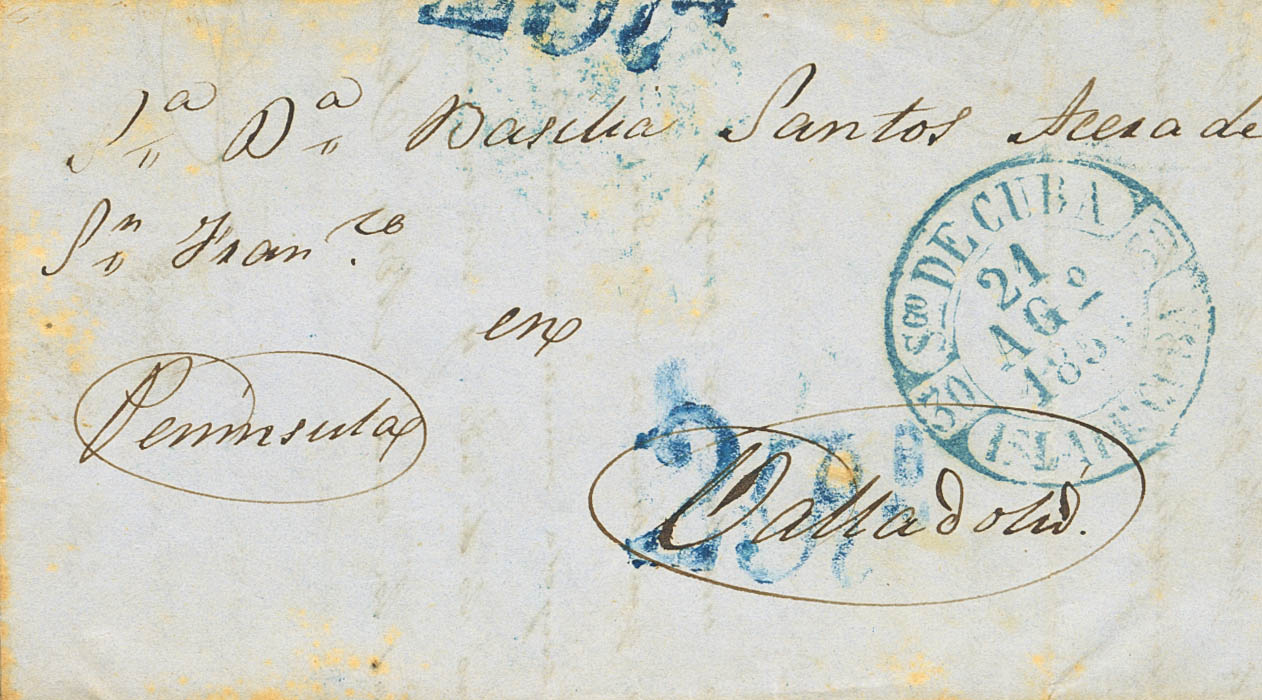 Sra Da Basilia Santos Acera de
Sn Franco
en
Peninsula
Valladolid.
SGO DE CUBA
21
AGO
185
30
ISLA DE CUBA